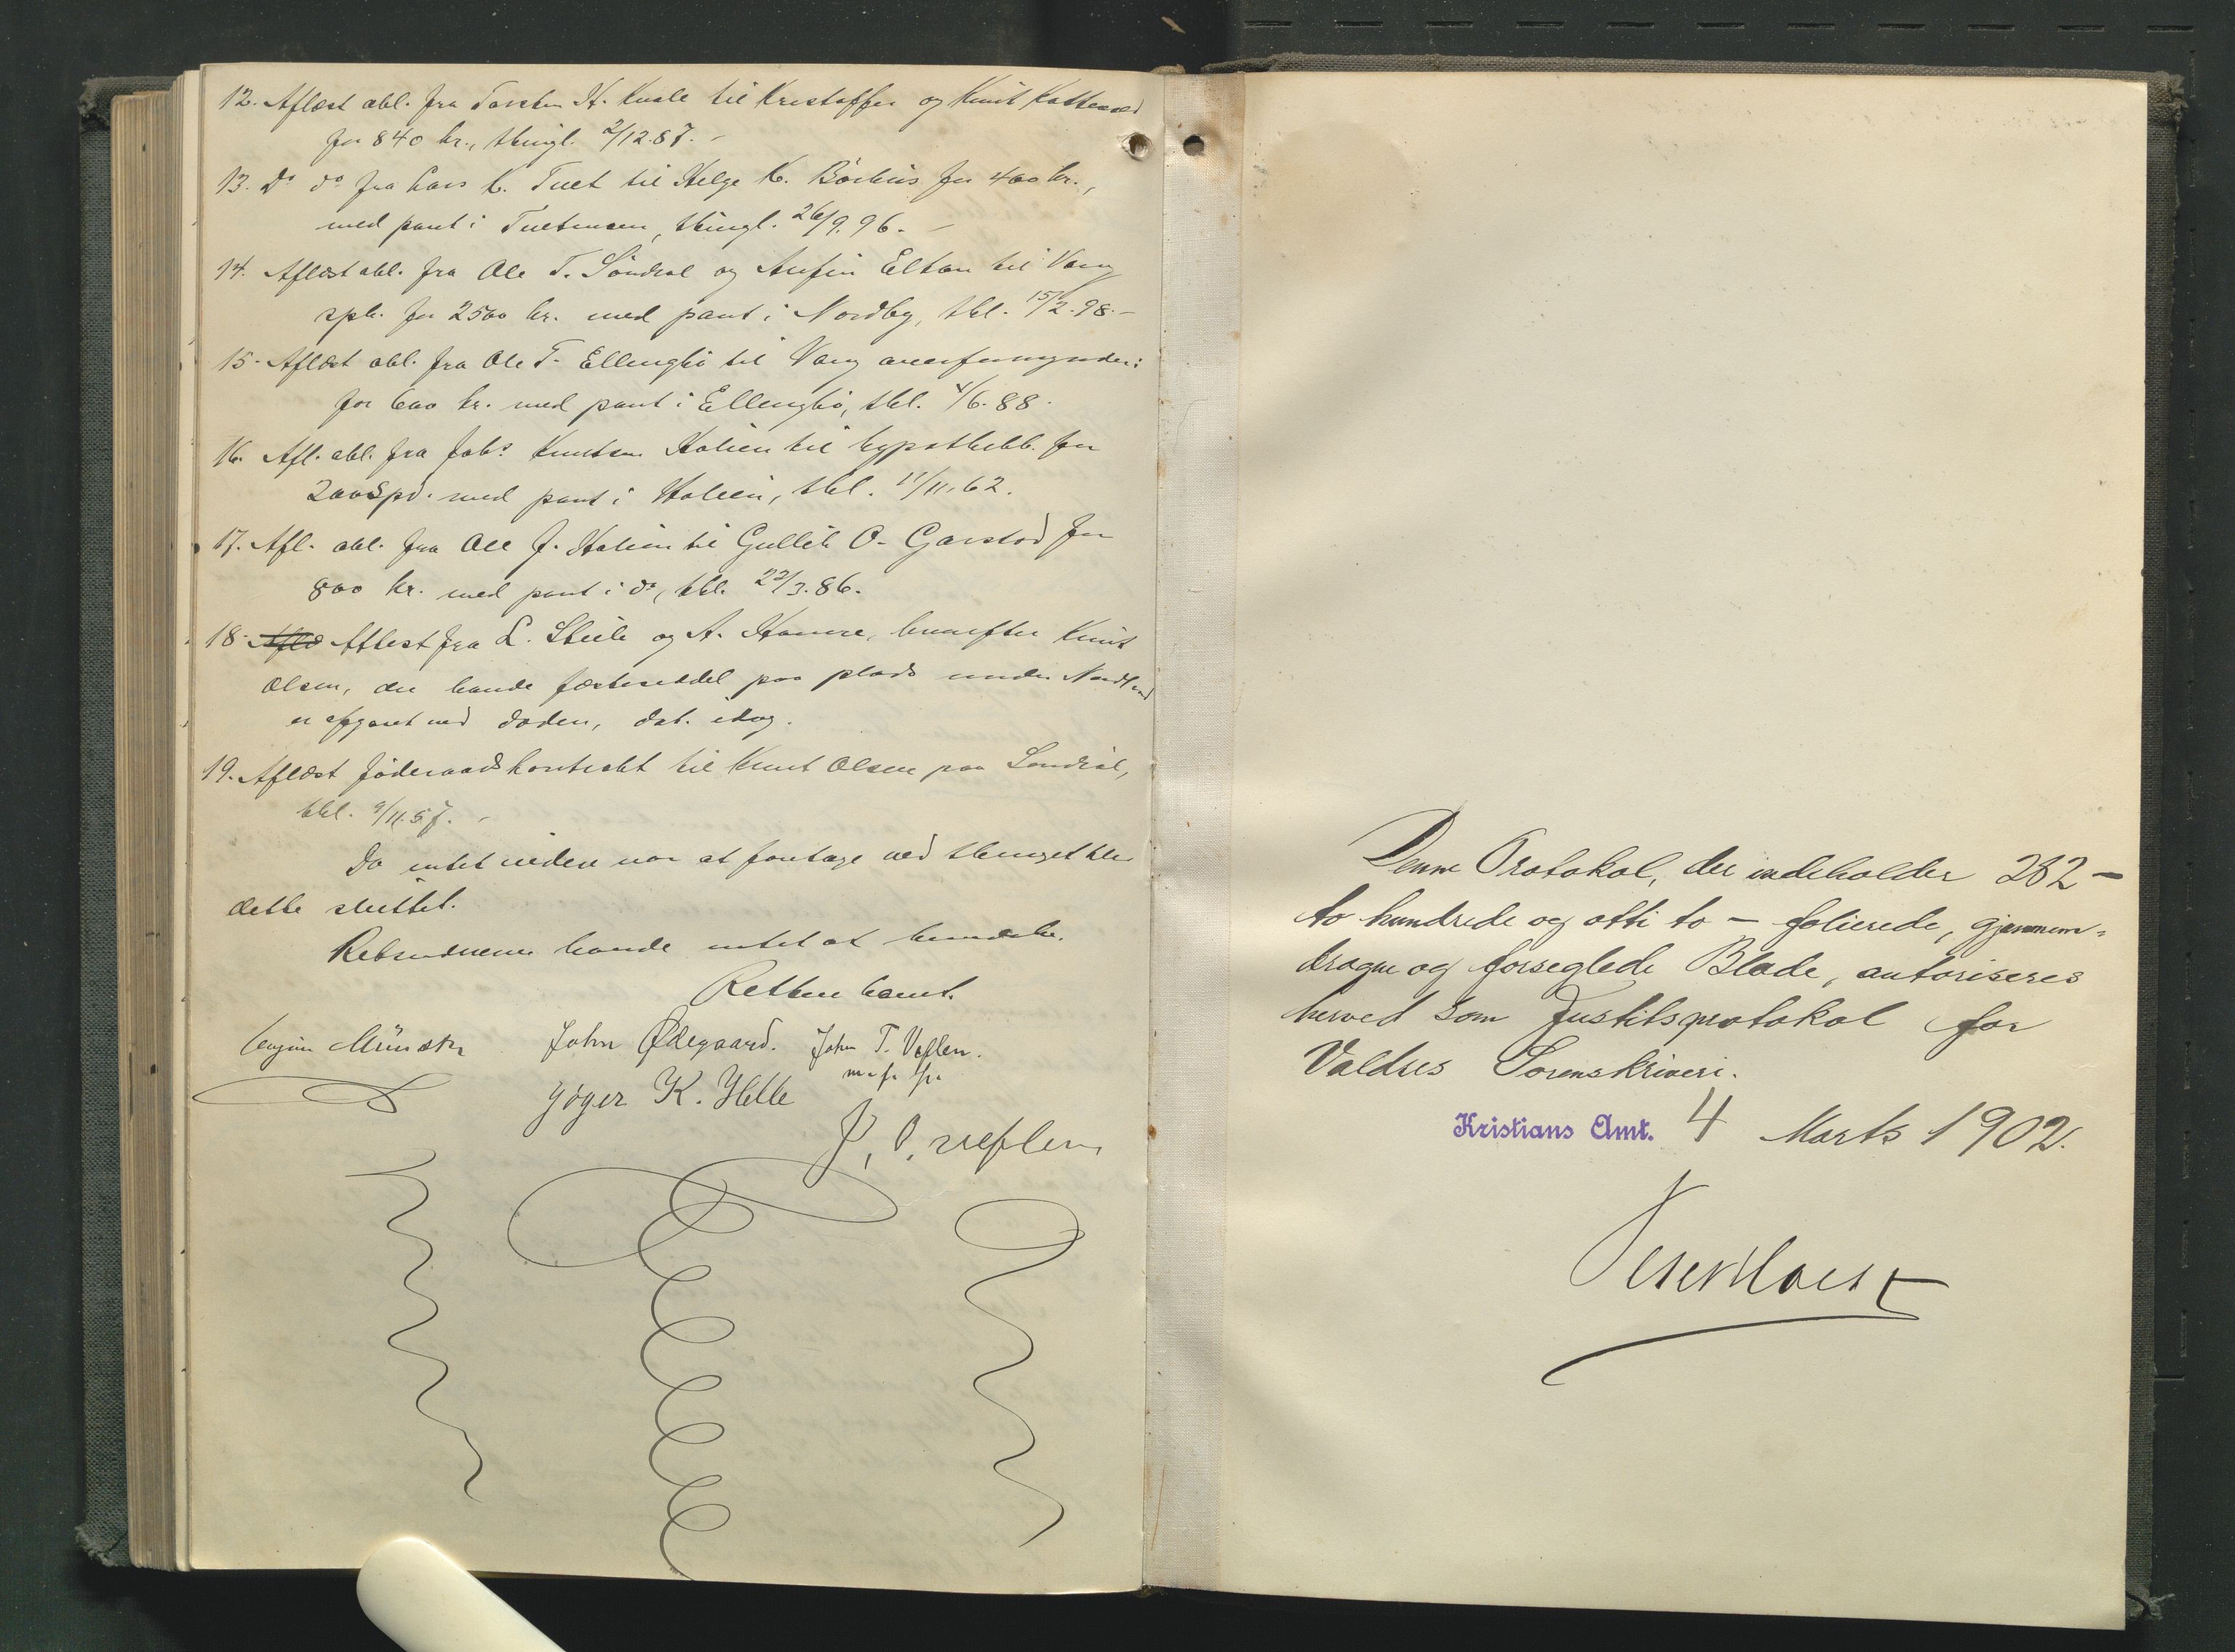 12. Aflæst obl. fra Torsten H. Kvale til Kristoffer og Knut
for 840 kr., thingl. 2/12.87. –
13. Do do fra Lars K. Tuet til Helge K. Børhus for 400 kr.,
med pant i, thingl. 26/9.96. –
14. Aflæst obl. fra Ole T. Søndrol og Anfin Elton til Vang
spb. for 2500 kr. med pant i Nordby, thl. 15/2.98. –
15. Aflæst obl. fra Ole T. Ellingbø til Vang overformynderi
for 600 kr. med pant i Ellingbø, thl. 4/6.88.
16. Afl. obl. fra Johs. Knutsen Holien til hypothekb. for
200 Spd. med pant i Holien, thl. 11/11.62.
17. Afl. obl. fra Ole J. Holien til Gullik O. Garstod for
800 kr. med pant i do, thl. 22/3.86.
18. Attest fra L. Steile og A. Hamre, hvorefter Knut
Olsen, der havde fæsteseddel paa plads under
er afgaaet ved døden, dat. idag.
19. Aflæst føderaadskontrakt til Knut Olsen paa Søndrol,
thl. 9/11.57. –
Da intet videre var at foretage ved thinget blev
dette sluttet.
Retsvidnerne havde intet at bemærke.
Retten hævet.
Münster John Ødegaard. John T. Veflen.
Jøger K. Helle m. f. p.
P. O. veflen
Denne Protokol, der indeholder 282 –
to hundrede og otti to – folierede, gjennem-
dragne og forseglede Blade, autoriseres
herved som Justitsprotokol for
Valdres Sorenskriveri.
Kristians Amt. 4 Marts 1902.